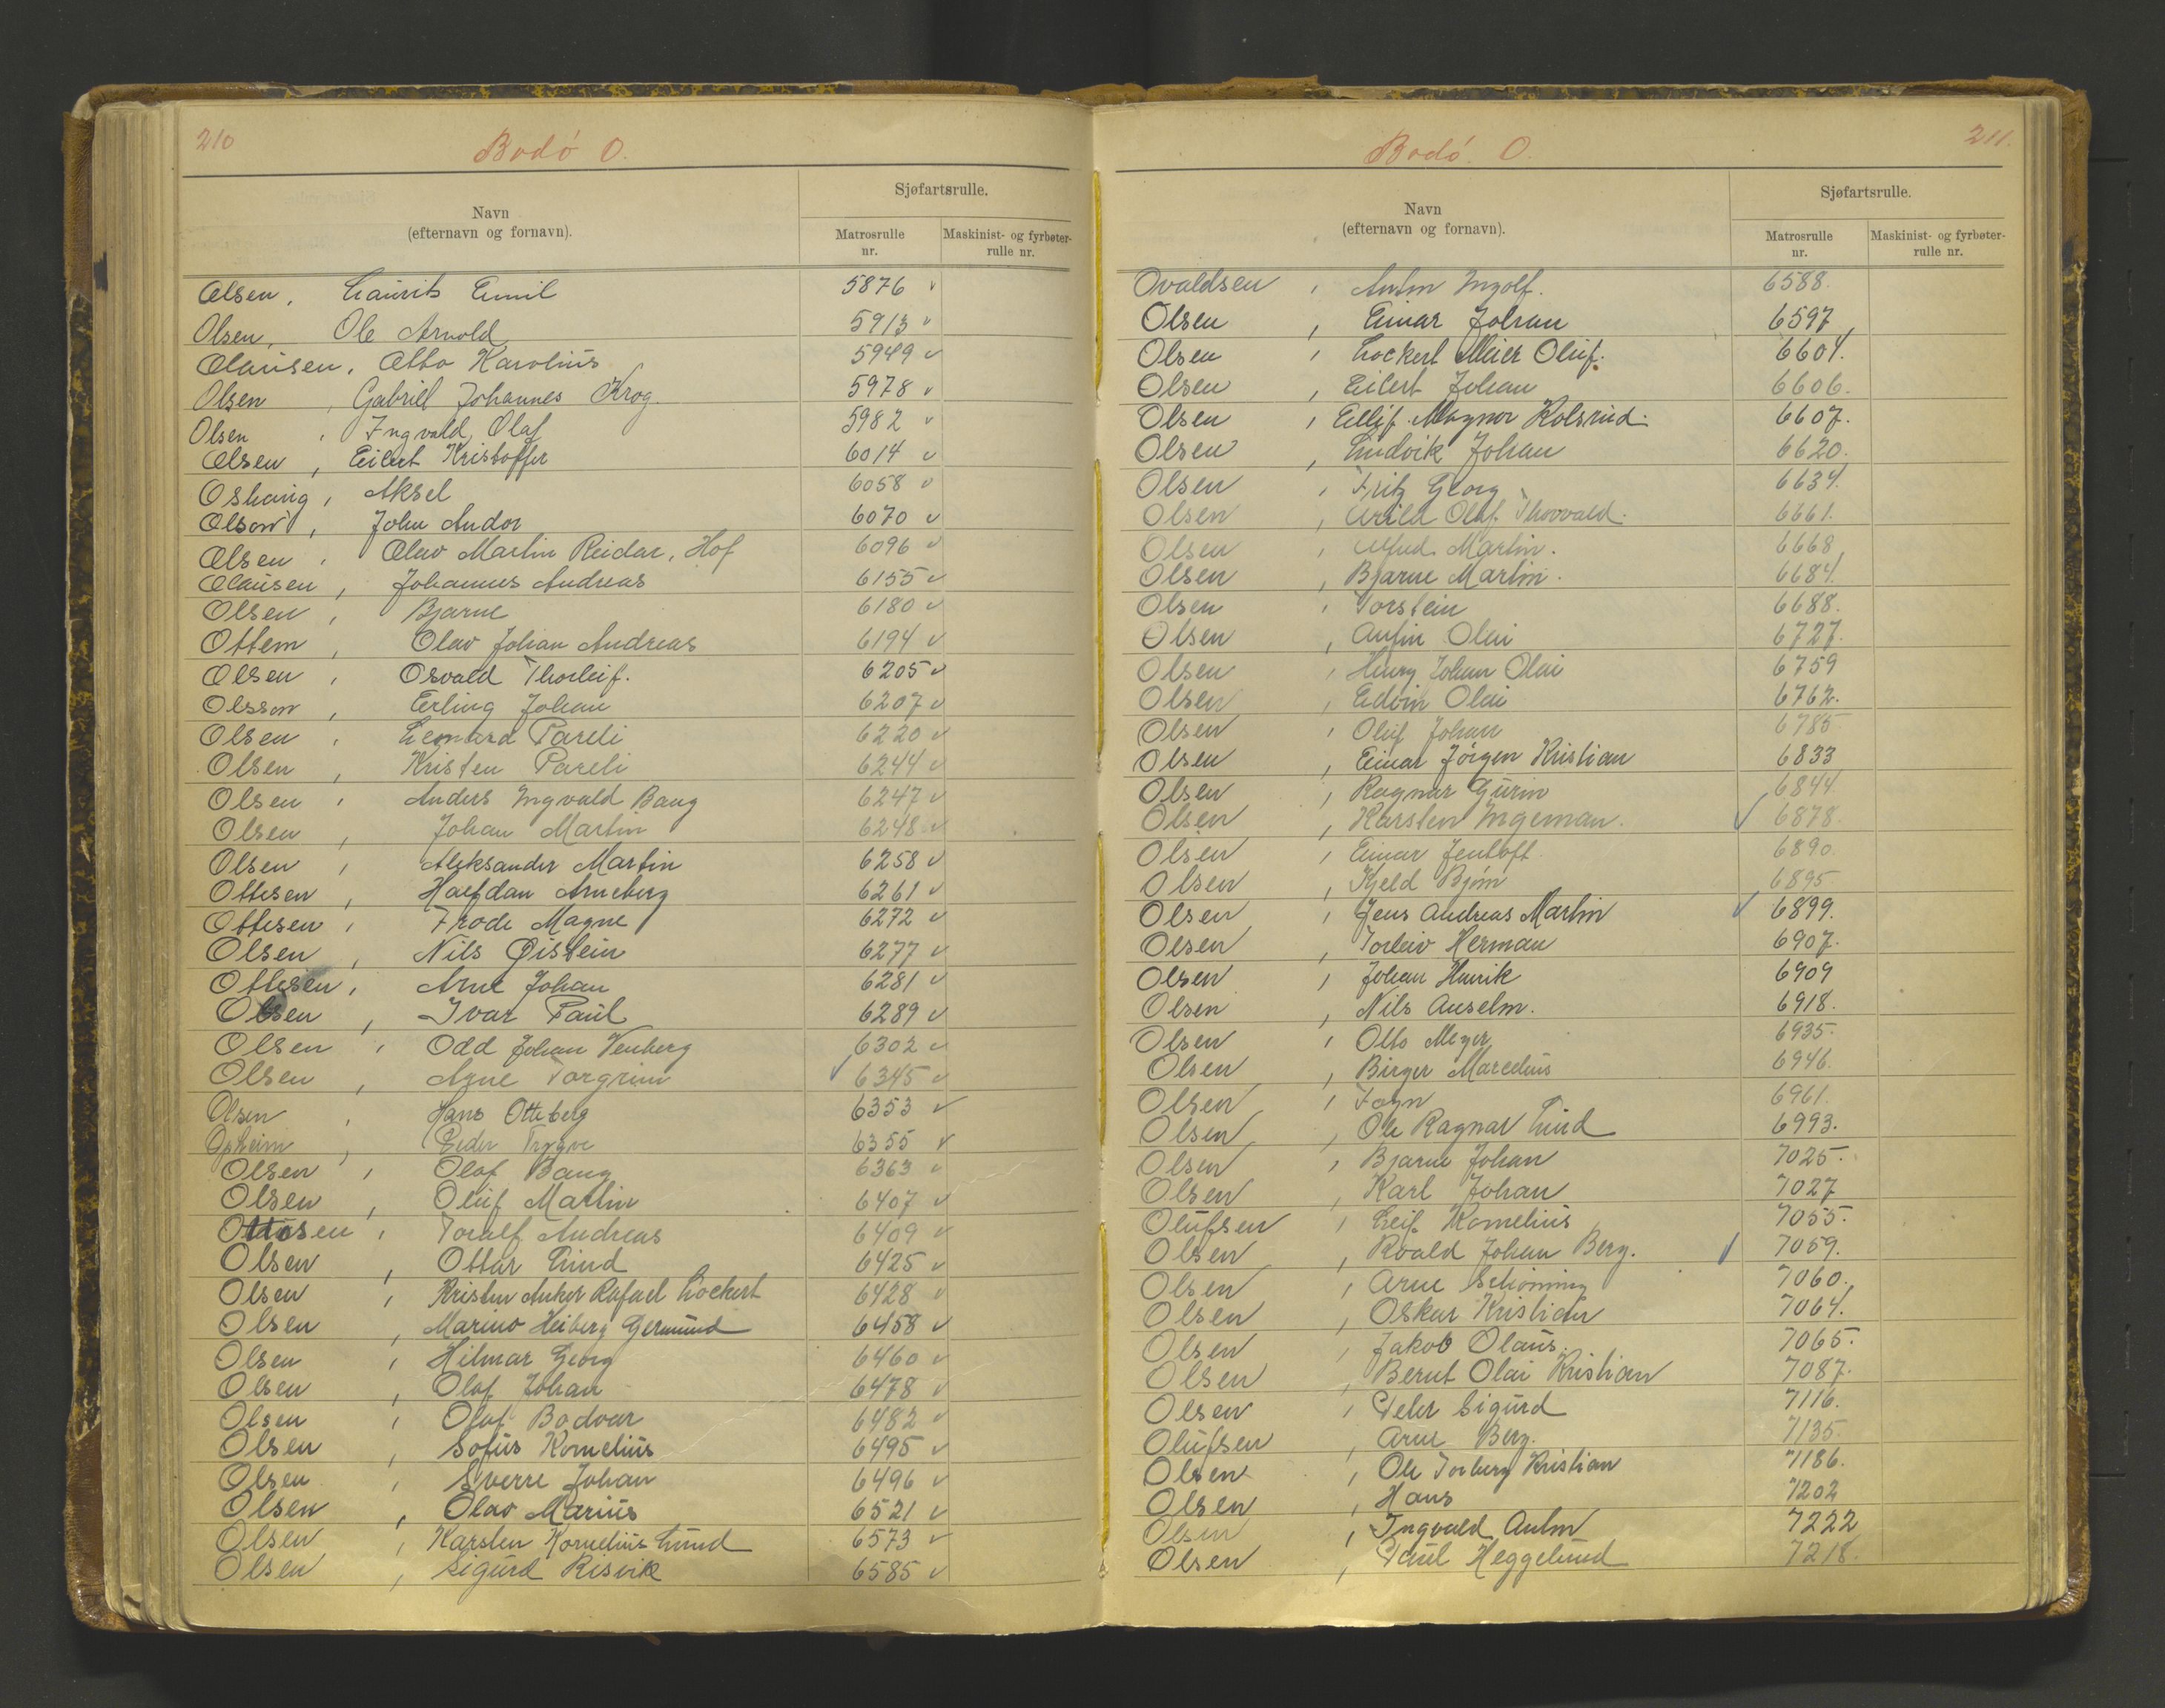 210
Bodó O.
Navn
(efternavn og fornavn).
Sjøfartsrulle.
Matrosrulle nr.
Maskinist- og fyrbøter-rulle nr.
Olsen, Laurits Emil 5876 v
Olsen, Ole Arnold 5913 v
Olausen, Otto Karolius 5949 v
Olsen, Gabriel Johannes Krog. 5978 v
Olsen, Ingvald Olaf 5982 v
Olsen, Eilert Kristoffer 6014 v
Oshaug, Aksel 6058 v
Olsen, John Andor 6070 v
Olsen, Olav Martin Reidar, Hof 6096 v
Olausen, Johannes Andreas 6155 v
Olsen, Bjarne 6180 v
Ottem, Olav Johan Andreas 6194 v
Olsen, Osvald Thorleif. 6205 v
Olsson, Erling Johan 6207 v
Olsen, Leonhard Pareli 6220 v
Olsen, Kristen Pareli 6244 v
Olsen, Anders Ingvald Bang 6247 v
Olsen, Johan Martin 6248 v
Olsen, Aleksander Martin 6258 v
Ottesen, Halfdan Arneberg 6261 v
Ottesen, Frode Magne 6272 v
Olsen, Nils Øistein 6277 v
Ottesen, Arne Johan 6281 v
Olsen, Ivar Paul 6289 v
Olsen, Odd Johan Venberg 6302 v
Olsen, Arne Torgrim v 6345 v
Olsen, Hans Otteberg 6353 v
Opheim, Peder Trygve 6355 v
Olsen, Olaf Bang 6363 v
Olsen, Oluf Martin 6407 v
Ottosen, Toralf Andreas 6409 v
Olsen, Ottar Lund 6425 v
Olsen, Kristen Anker Rafael Lockert 6428 v
Olsen, Marino Heiberg Germund 6458 v
Olsen, Hilmar Georg 6460 v
Olsen, Olaf Johan 6478 v
Olsen, Olaf Bodvar 6482 v
Olsen, Sofus Kornelius 6495 v
Olsen, Sverre Johan 6496 v
Olsen, Olav Marius 6521 v
Olsen, Karsten Kornelius Lund 6573 v
Olsen, Sigurd Risvik 6585 v
211.
Bodó. O.
Navn
(efternavn og fornavn).
Sjøfartsrulle.
Matrosrulle nr.
Maskinist- og fyrbøter-rulle nr.
Ovaldsen, Anton Ingolf. 6588.
Olsen, Einar Johan 6597
Olsen, Lockert Meier Oluf. 6604.
Olsen, Eilert Johan 6606.
Olsen, Eilif Magnor Kolsrud. 6607.
Olsen, Ludvik Johan 6620.
Olsen, Fritz Georg 6634.
Olsen, Arild Olaf Thorvald. 6661.
Olsen, Martin. 6668
Olsen, Bjarne Martin. 6684.
Olsen, Torstein 6688.
Olsen, Anfin Olai 6727.
Olsen, Henry Johan Olai 6759
Olsen, Edvin Olai 6762.
Olsen, Oluf Johan 6785
Olsen, Einar Jörgen Kristian 6833
Olsen, Ragnar Gurin 6844
Olsen, Karsten Ingeman. v 6878.
Olsen, Einar Jentoft. 6890.
Olsen, Kjeld Bjørn 6895
Olsen, Jens Andreas Martin v 6899.
Olsen, Torleiv Herman 6907.
Olsen, Johan Henrik 6909
Olsen, Nils Anselm. 6918.
Olsen, Otto Meyer 6935.
Olsen, Birger Marcelius 6946.
Olsen, 6961.
Olsen, Ole Ragnar Lund 6993.
Olsen, Bjarne Johan 7025.
Olsen, Karl Johan 7027
Olufsen, Leif Kornelius 7055.
Olsen, Roald Johan Berg. v 7059.
Olsen, Arne Schønning 7060.
Olsen, Oskar Kristian 7064.
Olsen, Jakob Olaus. 7065.
Olsen, Bernt Olai Kristian 7087.
Olsen, Peter Sigurd 7116.
Olufsen, Arne Berg. 7135.
Olsen, Ole Torberg Kristian 7186.
Olsen, Hans 7202
Olsen, Ingvald Anton 7222
Olsen, Paul Heggelund 7218.